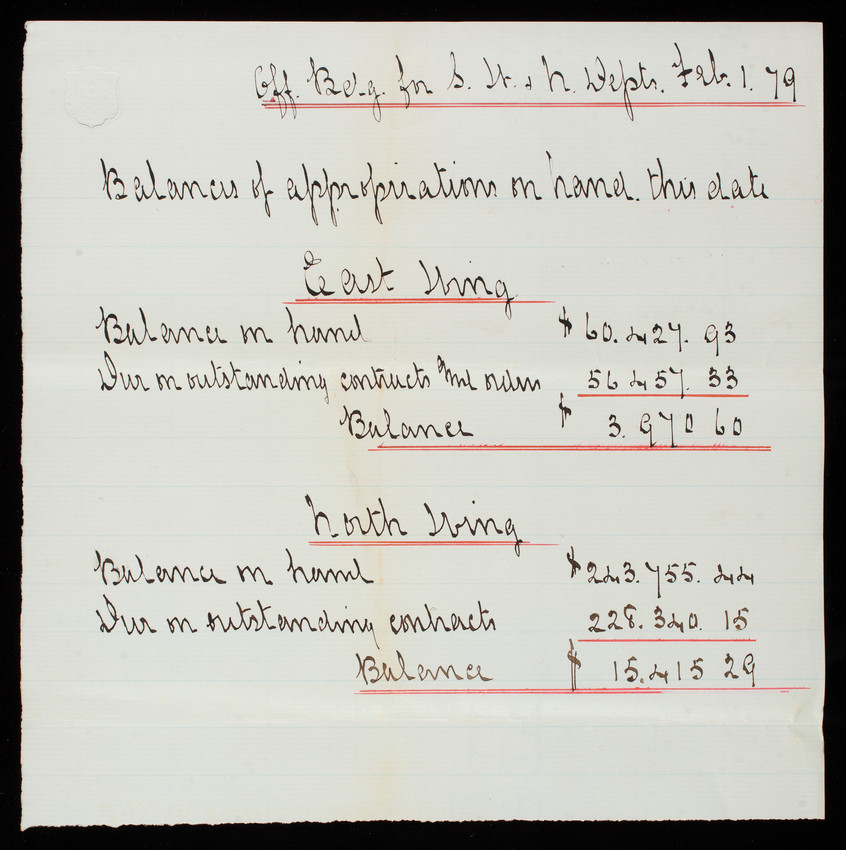 Off. Bldg. for S. W. & N. Depts. Feb. 1. 79
Balances of appropriations on hand. this date
East Wing
Balance on hand $ 60.427.93
Due on outstanding contracts and orders 56 457.33
Balance $ 3.970 60
North Wing
Balance on hand $ 243.755.44
Due on outstanding contracts 228.340.15
Balance $ 15.415 29